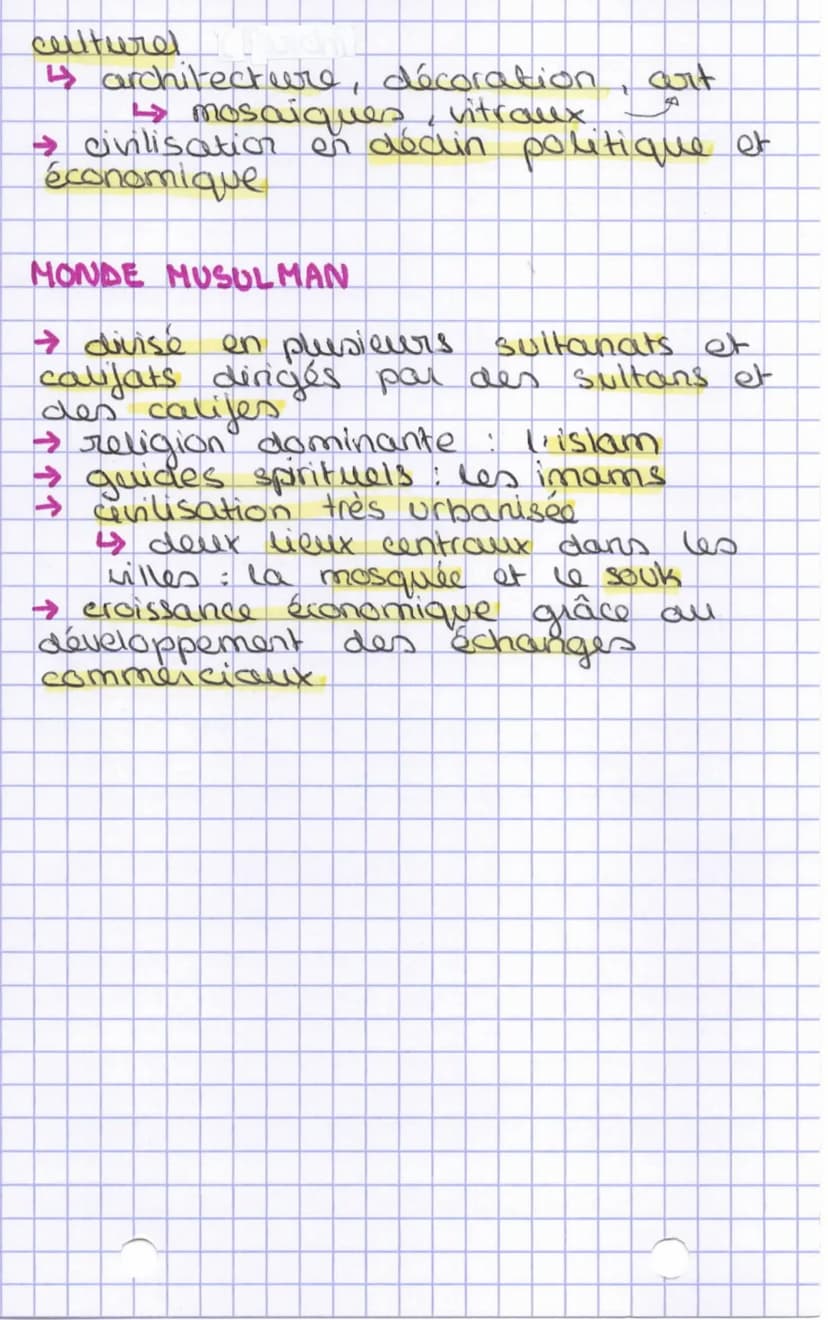 culturel
↳ architecture, décoration, art
↳ mosaïques, vitraux
→ civilisation en déclin politique et
économique
MONDE MUSULMAN
→ divisé en plusieurs sultanats et
califats dirigés par des sultans et
des califes
→ religion dominante : l'islam
→ guides spirituels : les imams
→ civilisation très urbanisée
↳ deux lieux centraux dans les
villes : la mosquée et le souk
→ croissance économique grâce au
développement des échanges
commerciaux